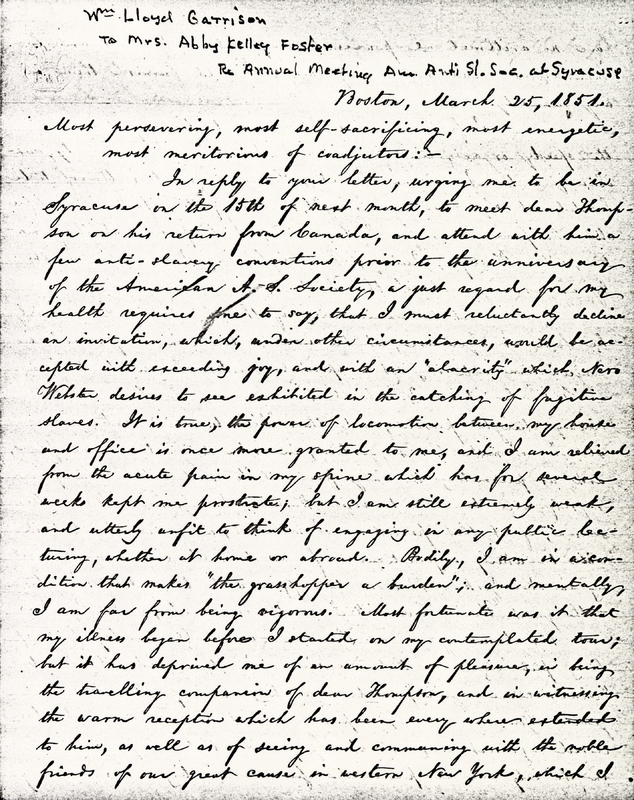 Wm. Lloyd Garrison
To Mrs. Abby Kelley Foster
Re Annual Meeting Am. Anti Sl. Soc. at Syracuse
Boston, March 25, 1851.
Most persevering, most self-sacrificing, most energetic,
most meritorious of coadjutors:—
In reply to your letter, urging me to be in
Syracuse on the 15th of next month, to meet dear Thomp-
son on his return from Canada, and attend with him a
few anti-slavery conventions prior to the anniversary
of the American A. S. Society, a just regard for my
health requires me to say, that I must reluctantly decline
an invitation, which, under other circumstances, would be ac-
cepted with exceeding joy, and with an "alacrity" which Nero
Webster desires to see exhibited in the catching of fugitive
slaves. It is true, the power of locomotion between my house
and office is once more granted to me, and I am relieved
from the acute pain in my spine which has for several
weeks kept me prostrate; but I am still extremely weak,
and utterly unfit to think of engaging in any public lec-
turing, whether at home or abroad. Bodily, I am in a con-
dition that makes "the grasshopper a burden"; and mentally,
I am far from being vigorous. Most fortunate was it that
my illness began before I started on my contemplated tour;
but it has deprived me of an amount of pleasure, in being
the travelling companion of dear Thompson, and in witnessing
the warm reception which has been every where extended
to him, as well as of seeing and communing with the noble
friends of our great cause in western New York, which I